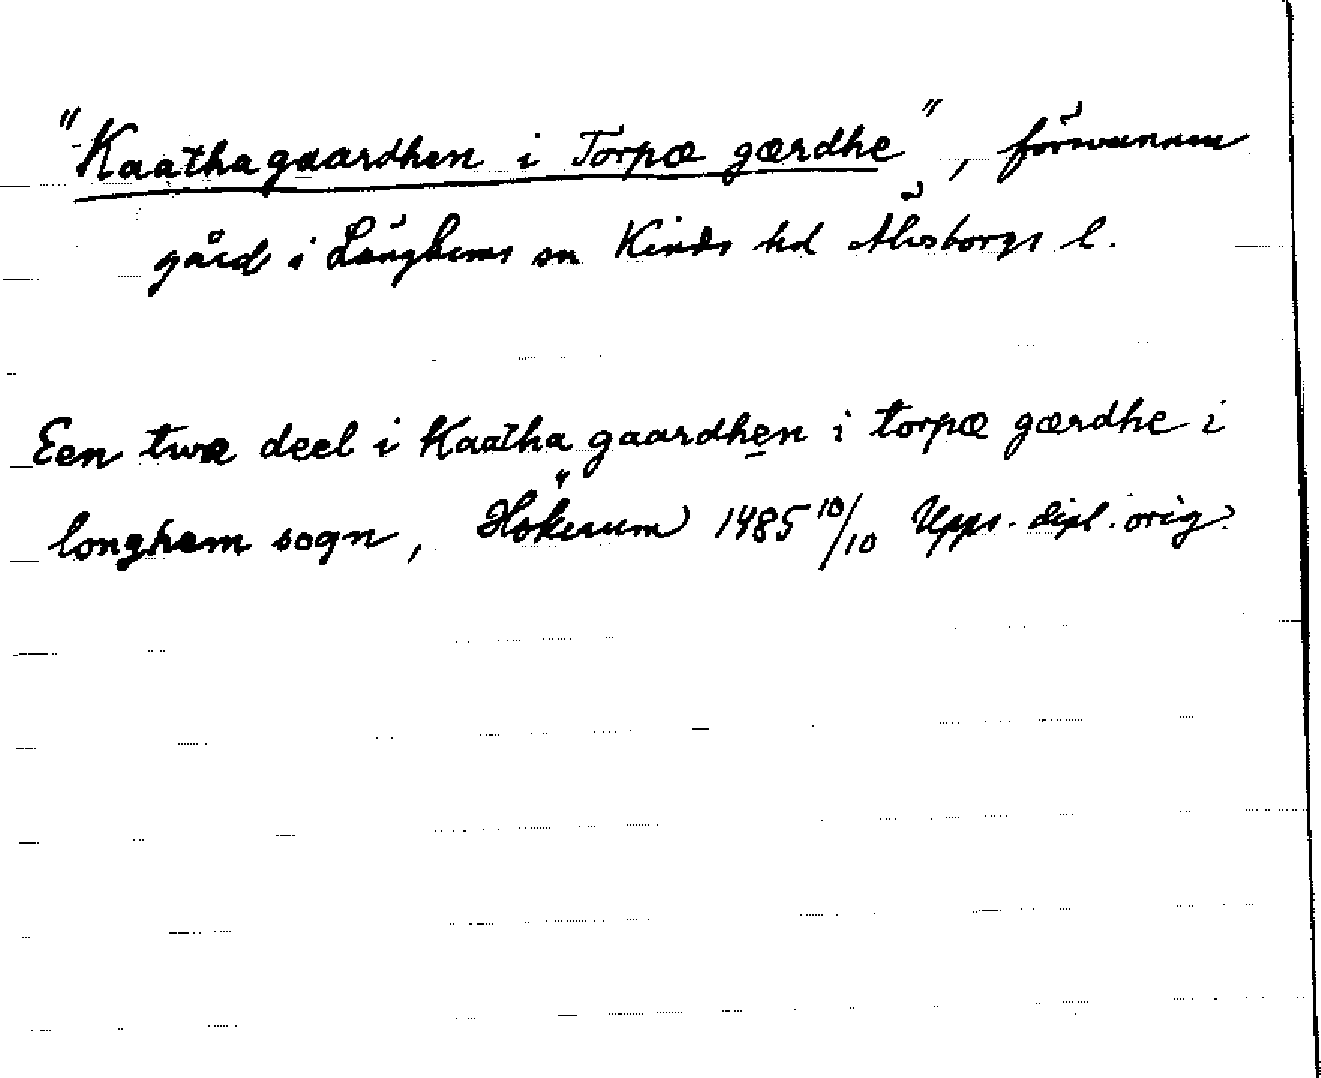 "Kaatha gaardhen i Torpæ gærdhe", försvunnen
gård i Länghems sn Kinds hd Älvsborgs l.
Een twæ deel i Kaatha gaardhen i torpæ gærdhe i
longhem sogn, Hökerum 1485 10/10 Upps. dipl. orig.